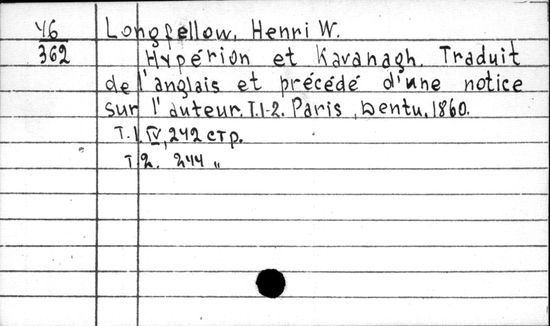 У6
362
Longfellow, Henri W.
Hypérion et Kavanagh. Traduit
de l'anglais et précédé d'une notice
sur l'auteur. T.1-2. Paris, Dentu, 1860.
T.1. IV, 242 стр.
T.2. 244 "